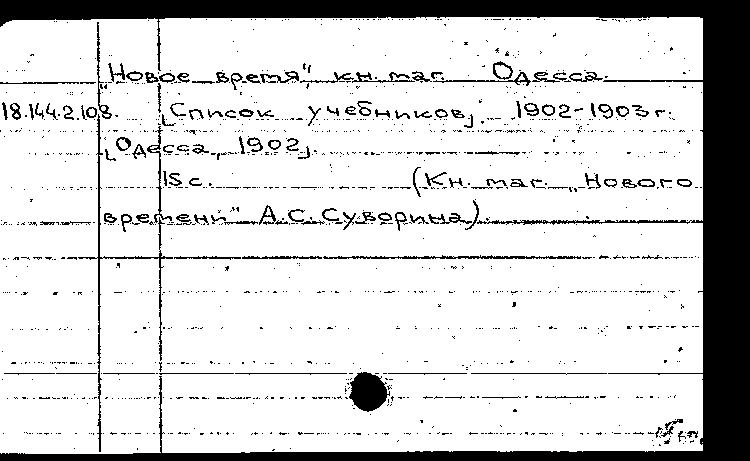 „Новое время“, кн. маг. Одесса.
18.144.2.108. [Список учебников]. 1902-1903 г.
[Одесса, 1902].
15 с. (Кн. маг. „Нового
времени“ А.С. Суворина).